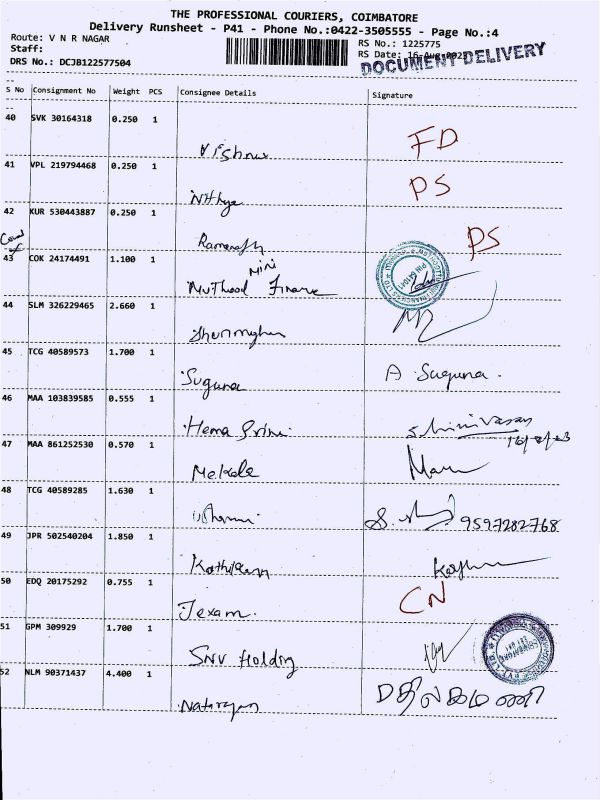 THE PROFESSIONAL COURIERS, COIMBATORE
Delivery Runsheet - P41 - Phone No.:0422-3505555 - Page No.:4
Route: V N R NAGAR RS No.: 1225775
Staff: RS Date: 16-Aug-2023
DRS No.: DCJB122577504 DOCUMENT DELIVERY
S No Consignment No Weight PCS Consignee Details Signature
40 SVK 30164318 0.250 1
Vishnu FD
41 VPL 219794468 0.250 1
Nithya PS
42 KUR 530443887 0.250 1
Ramanath PS
43 COK 24174491 1.100 1
Muthood Mini Finance
44 SLM 326229465 2.660 1
45 TCG 40589573 1.700 1
Suguna A Suguna.
46 MAA 103839585 0.555 1
Hema Srini Shrinivasan
47 MAA 861252530 0.570 1
Mekala
48 TCG 40589285 1.630 1
9597282768
49 JPR 502540204 1.850 1
50 EDQ 20175292 0.755 1
Texam. CN
51 GPM 309929 1.700 1
SNV Holding
52 NLM 90371437 4.400 1
Natarajan மதிலகமணி